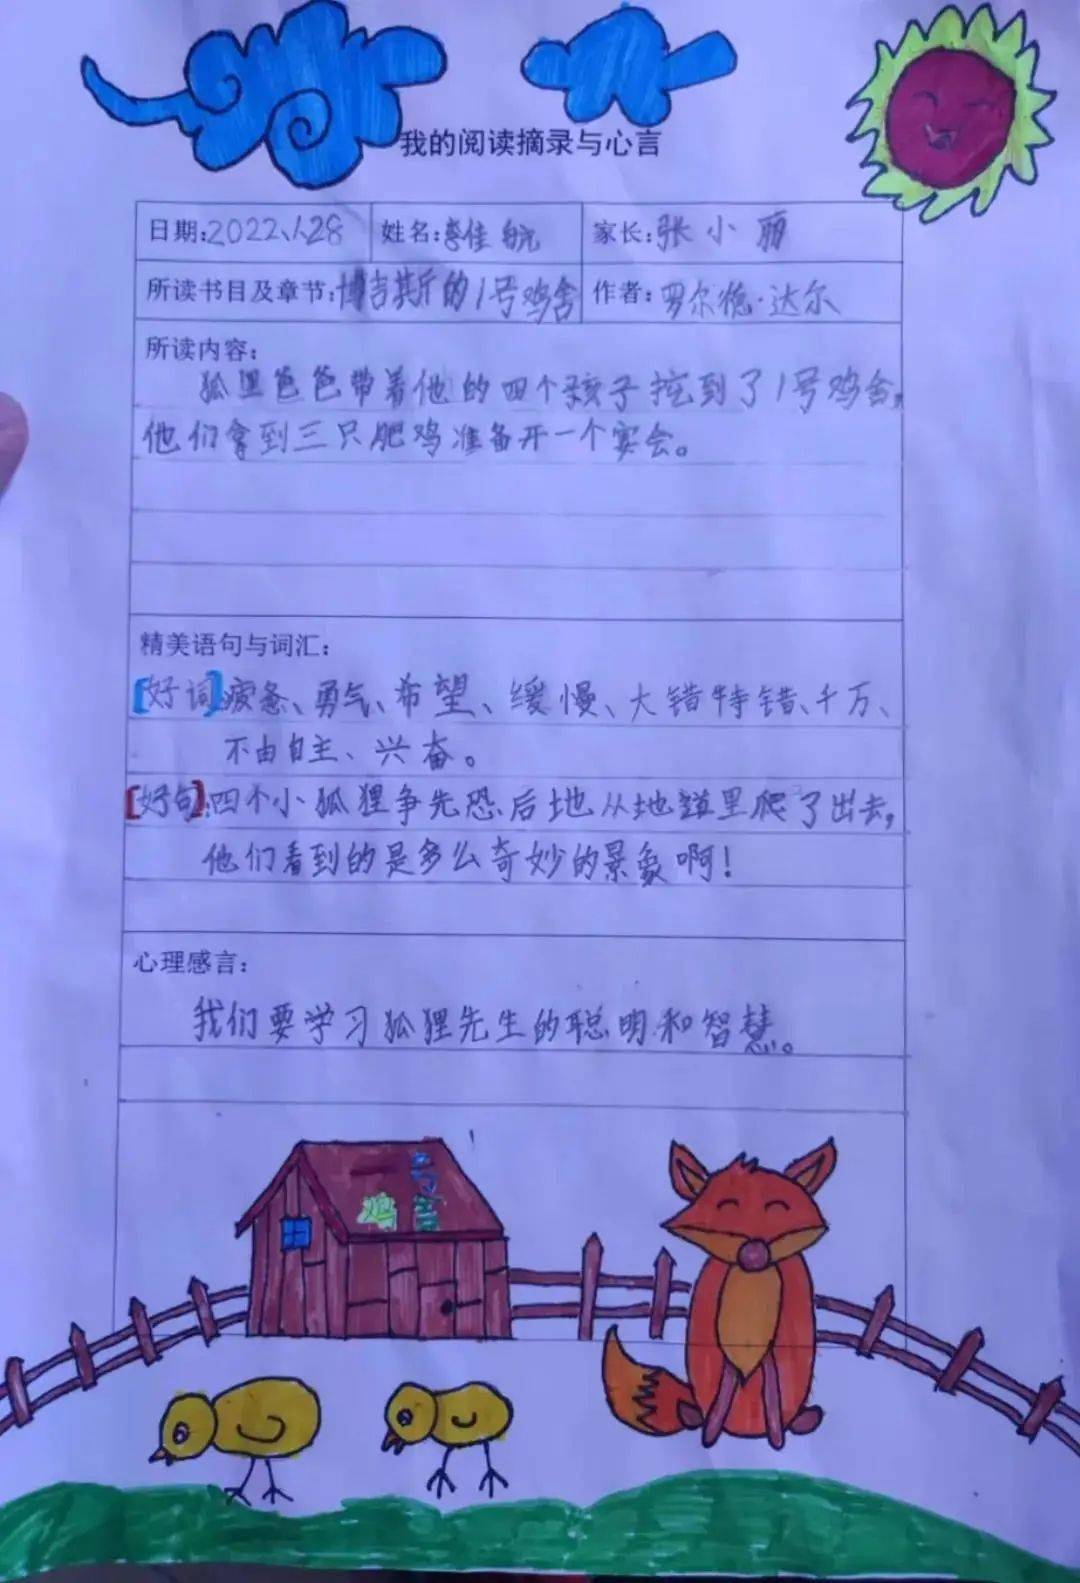 我的阅读摘录与心言
日期:2022、1、28 姓名:李佳航 家长:张小丽
所读书目及章节:博吉斯的1号鸡舍 作者:罗尔德·达尔
所读内容:
狐里爸爸带着他的四个孩子挖到了1号鸡舍,
他们拿到三只肥鸡准备开一个宴会。
精美语句与词汇:
[好词]疲惫、勇气、希望、缓慢、大错特错、千万、
不由自主、兴奋。
[好句]:四个小狐狸争先恐后地从地道里爬了出去,
他们看到的是多么奇妙的景象啊!
心理感言:
我们要学习狐狸先生的聪明和智慧。
号
鸡舍